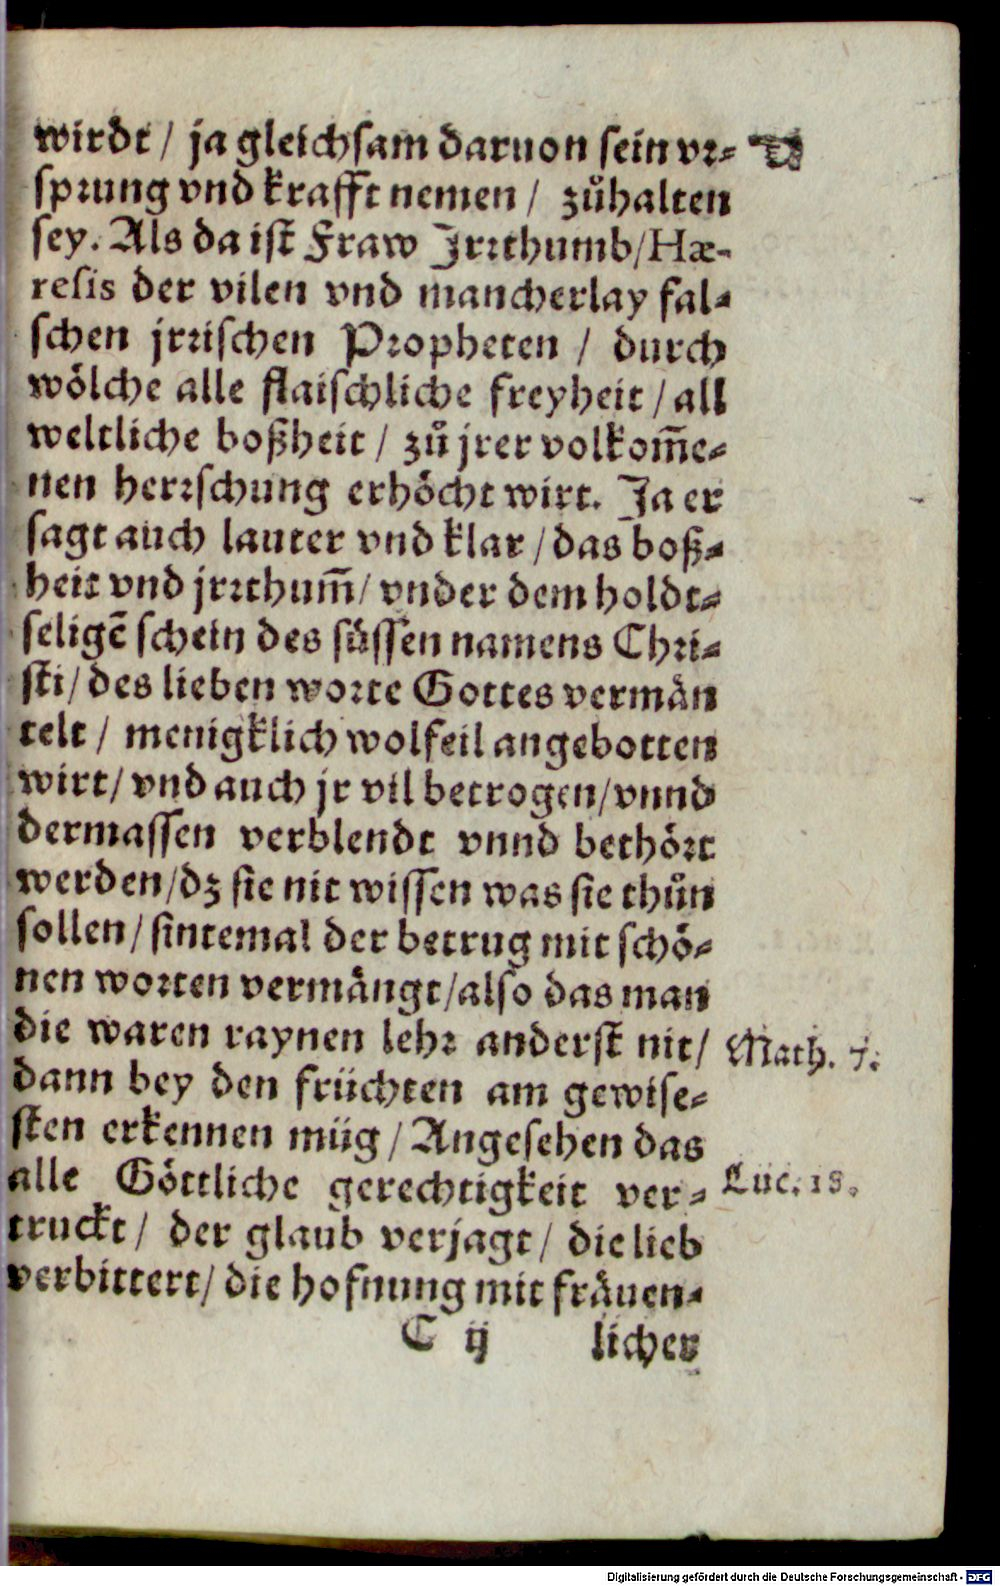 wirdt / ja gleichsam daruon sein vr-
sprung vnd krafft nemen / zůhalten
sey. Als da ist Fraw Jrrthumb/Hæ-
resis der vilen vnd mancherlay fal-
schen jrrischen Propheten / durch
wölche alle flaischliche freyheit / all
weltliche boßheit / zů jrer volkom̃e-
nen herrschung erhöcht wirt. Ja er
sagt auch lauter vnd klar / das boß-
heit vnd jrrthum̃/ vnder dem holdt-
seligẽ schein des süssen namens Chri-
sti/ des lieben worte Gottes vermän
telt / menigklich wolfeil angebotten
wirt/ vnd auch jr vil betrogen/vnnd
dermassen verblendt vnnd bethört
werden/dz sie nit wissen was sie thůn
sollen/ sintemal der betrug mit schö-
nen worten vermängt/also das man
die waren raynen lehr anderst nit/ Math. 7.
dann bey den früchten am gewise-
sten erkennen müg / Angesehen das
alle Göttliche gerechtigkeit ver- Luc. 18.
truckt / der glaub verjagt / die lieb
verbittert/ die hofnung mit fräuen-
C ij licher
Digitalisierung gefördert durch die Deutsche Forschungsgemeinschaft - DFG